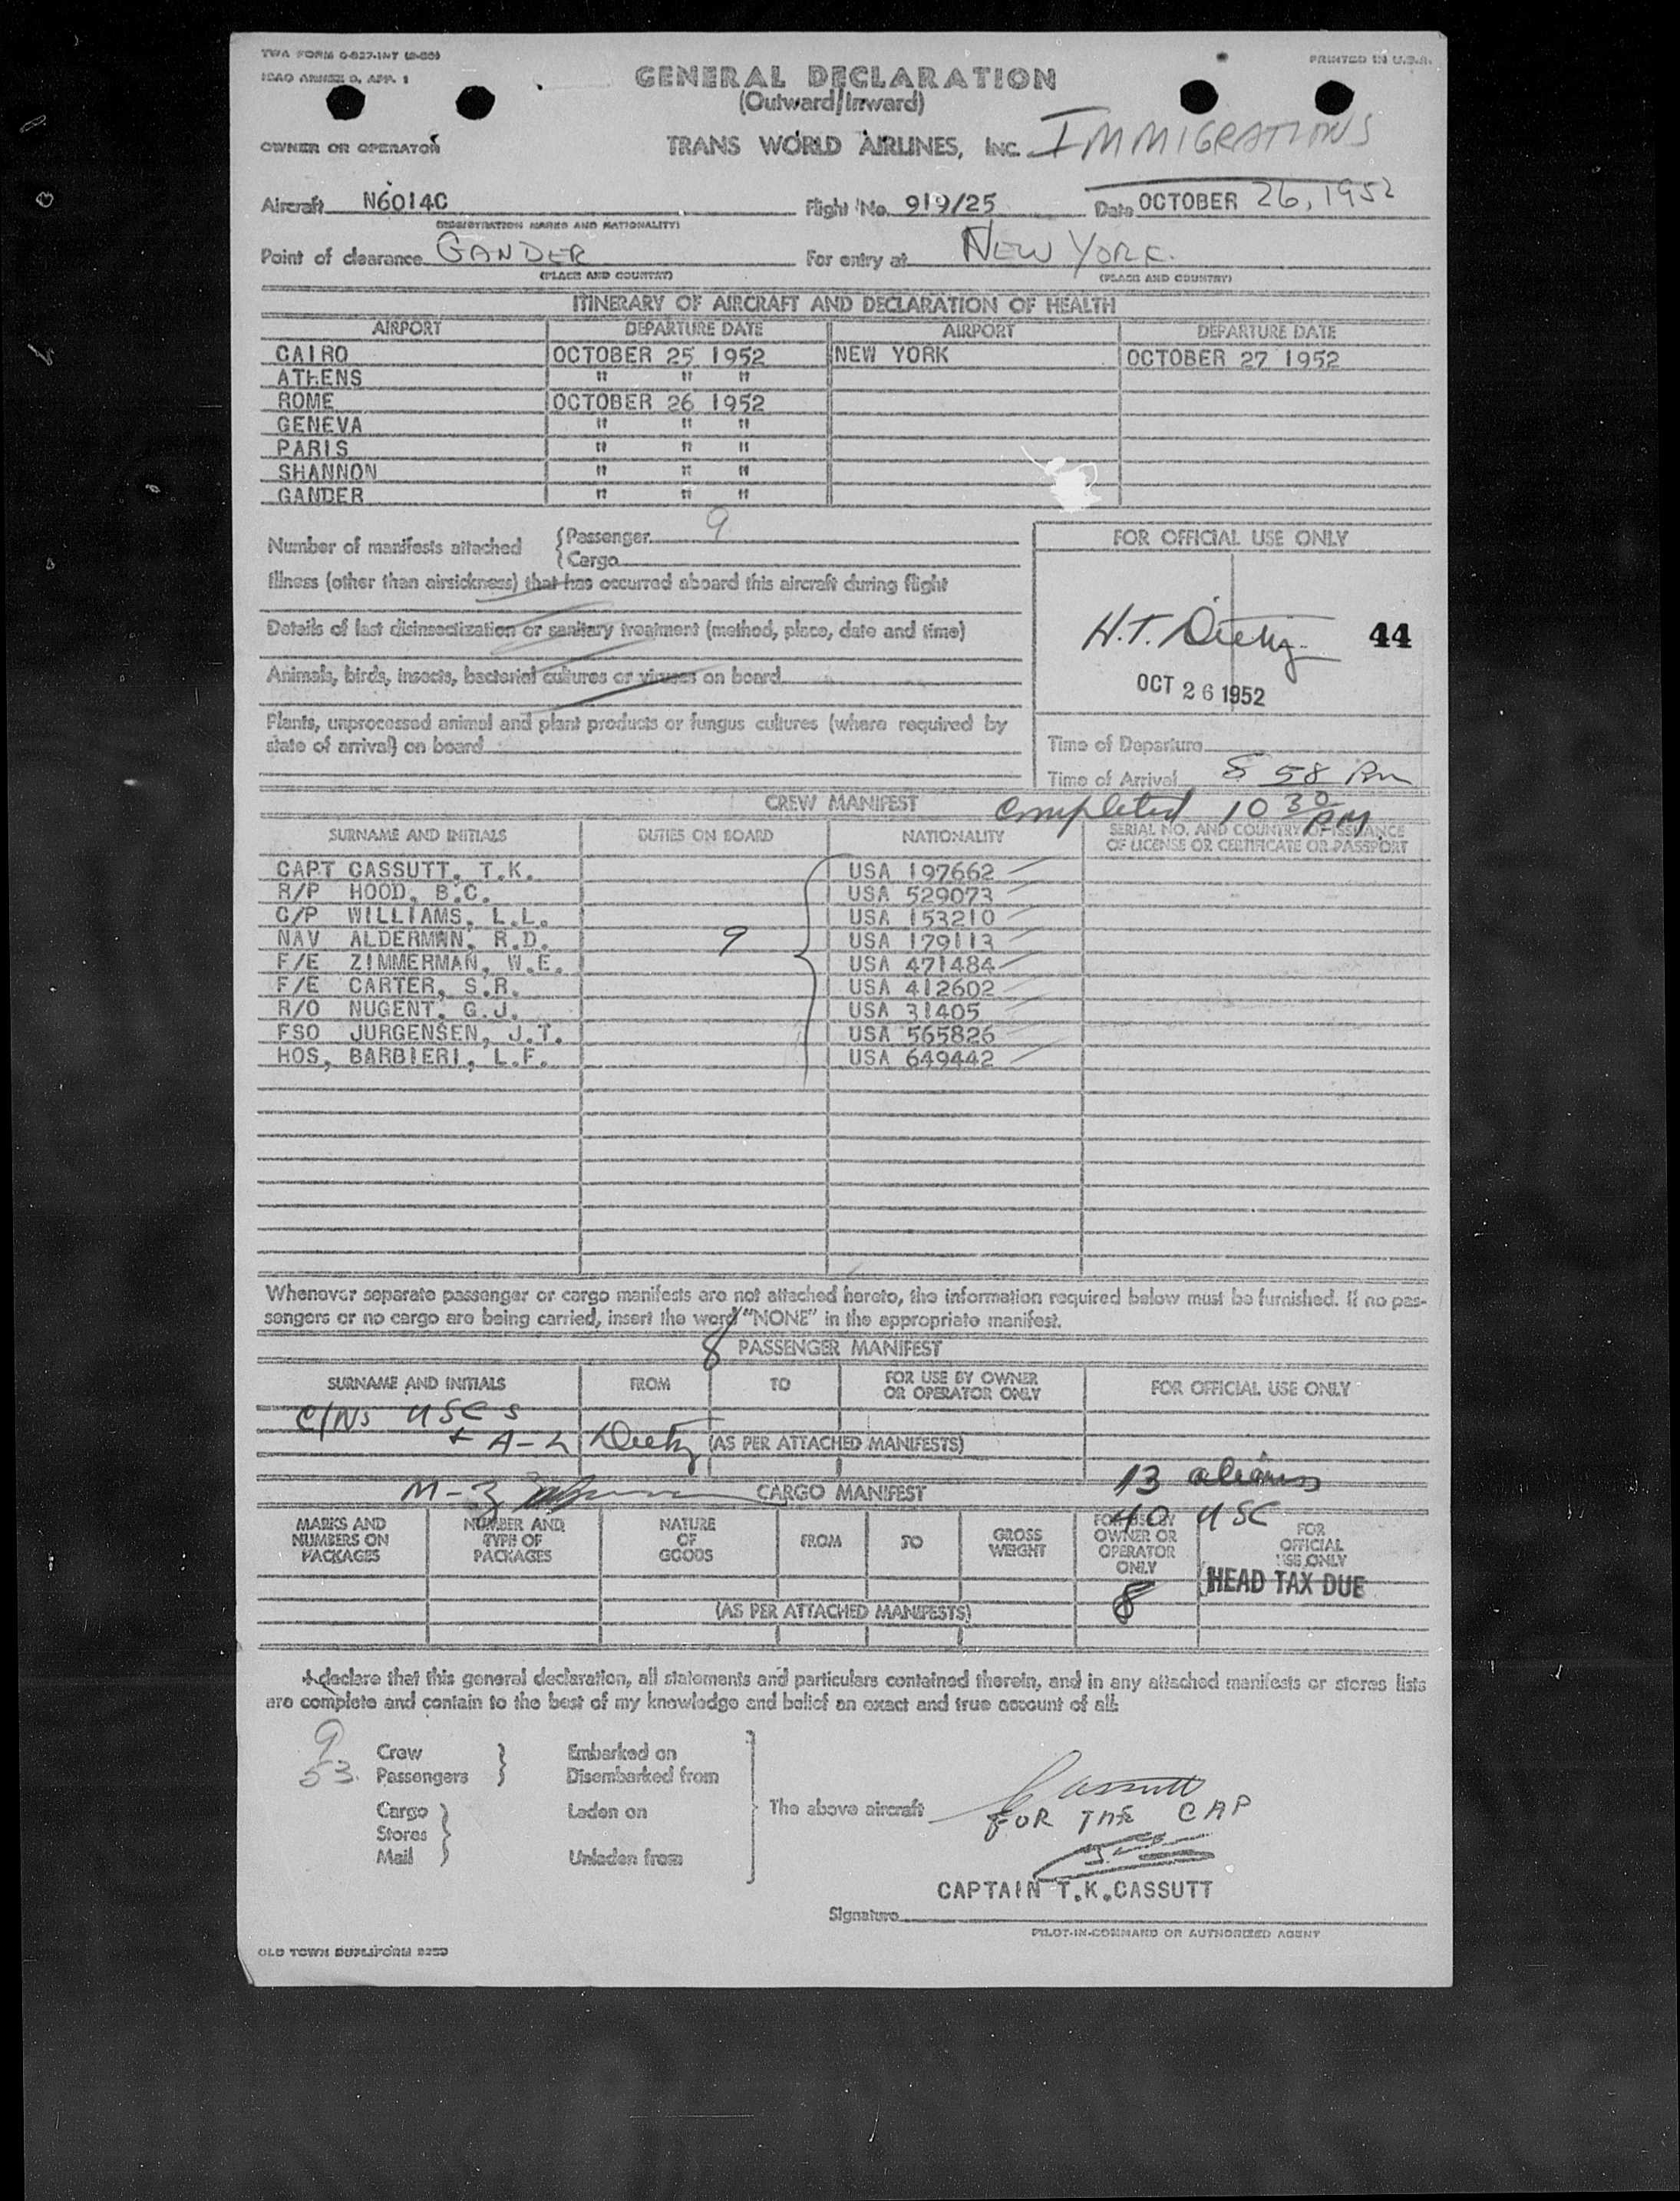 TWA FORM O-827-INT (2-50)
ICAO ANNEX 9, APP. 1
PRINTED IN U.S.A.
GENERAL DECLARATION
(Outward/Inward)
OWNER OR OPERATOR TRANS WORLD AIRLINES, INC. IMMIGRATIONS
Aircraft N6014C Flight No. 919/25 Date OCTOBER 26, 1952
(REGISTRATION MARKS AND NATIONALITY)
Point of clearance GANDER For entry at NEW YORK.
(PLACE AND COUNTRY) (PLACE AND COUNTRY)
ITINERARY OF AIRCRAFT AND DECLARATION OF HEALTH
AIRPORT DEPARTURE DATE AIRPORT DEPARTURE DATE
CAIRO OCTOBER 25 1952 NEW YORK OCTOBER 27 1952
ATHENS " " "
ROME OCTOBER 26 1952
GENEVA " " "
PARIS " " "
SHANNON " " "
GANDER " " "
Number of manifests attached { Passenger 9
{ Cargo
FOR OFFICIAL USE ONLY
Illness (other than airsickness) that has occurred aboard this aircraft during flight
Details of last disinsectization or sanitary treatment (method, place, date and time)
H.T. Dietz 44
Animals, birds, insects, bacterial cultures or viruses on board
OCT 26 1952
Plants, unprocessed animal and plant products or fungus cultures (where required by
state of arrival) on board
Time of Departure
Time of Arrival 8 58 PM
CREW MANIFEST completed 10 30 PM
SURNAME AND INITIALS DUTIES ON BOARD NATIONALITY SERIAL NO. AND COUNTRY OF ISSUANCE
OF LICENSE OR CERTIFICATE OR PASSPORT
CAPT CASSUTT, T.K. USA 197662
R/P HOOD, B.C. USA 529073
C/P WILLIAMS, L.L. USA 153210
NAV ALDERMAN, R.D. 9 USA 179113
F/E ZIMMERMAN, W.E. USA 471484
F/E CARTER, S.R. USA 412602
R/O NUGENT, G.J. USA 31405
FSO JURGENSEN, J.T. USA 565826
HOS, BARBIERI, L.F. USA 649442
Whenever separate passenger or cargo manifests are not attached hereto, the information required below must be furnished. If no pas-
sengers or no cargo are being carried, insert the word "NONE" in the appropriate manifest.
8 PASSENGER MANIFEST
SURNAME AND INITIALS FROM TO FOR USE BY OWNER
OR OPERATOR ONLY FOR OFFICIAL USE ONLY
C/Ns USCs
+ A-L Dietz (AS PER ATTACHED MANIFESTS)
13 aliens
M-Z CARGO MANIFEST
40 USC
MARKS AND
NUMBERS ON
PACKAGES
NUMBER AND
TYPE OF
PACKAGES
NATURE
OF
GOODS
FROM
TO
GROSS
WEIGHT
FOR USE BY
OWNER OR
OPERATOR
ONLY
FOR
OFFICIAL
USE ONLY
8 HEAD TAX DUE
(AS PER ATTACHED MANIFESTS)
I declare that this general declaration, all statements and particulars contained therein, and in any attached manifests or stores lists
are complete and contain to the best of my knowledge and belief an exact and true account of all:
9 Crew Embarked on
53 Passengers Disembarked from
Cargo Laden on The above aircraft Cassutt
Stores FOR THE CAP
Mail Unladen from
CAPTAIN T.K.CASSUTT
Signature
PILOT-IN-COMMAND OR AUTHORIZED AGENT
OLD TOWN DUPLIFORM 8259